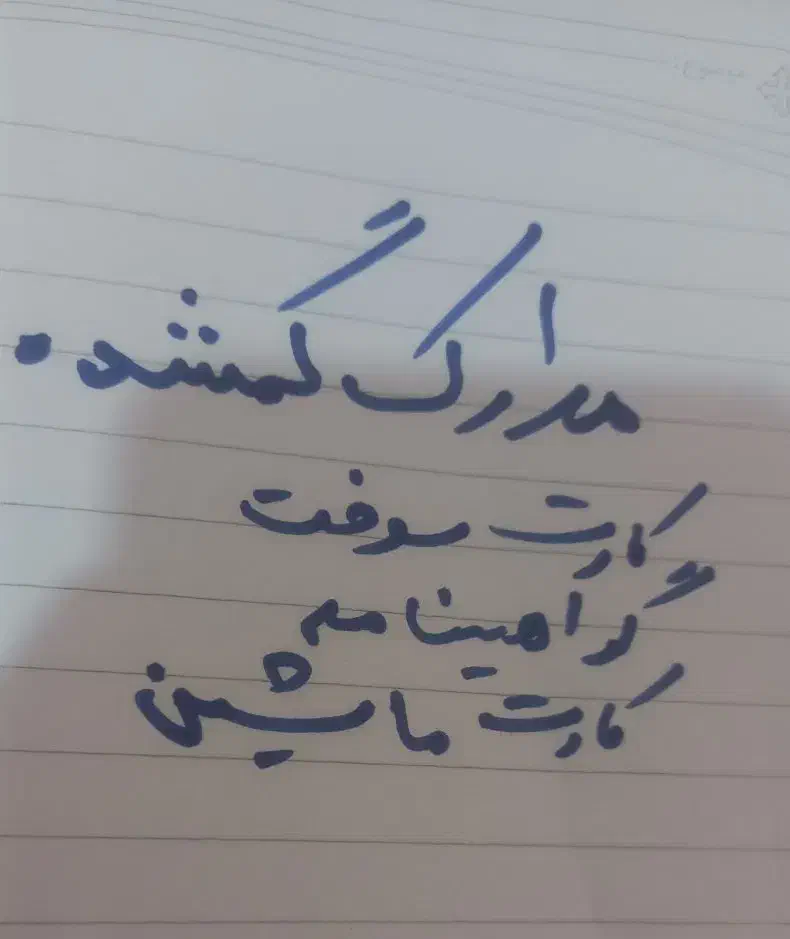 مدارک گمشده
کارت سوخت
گواهینامه
کارت ماشین